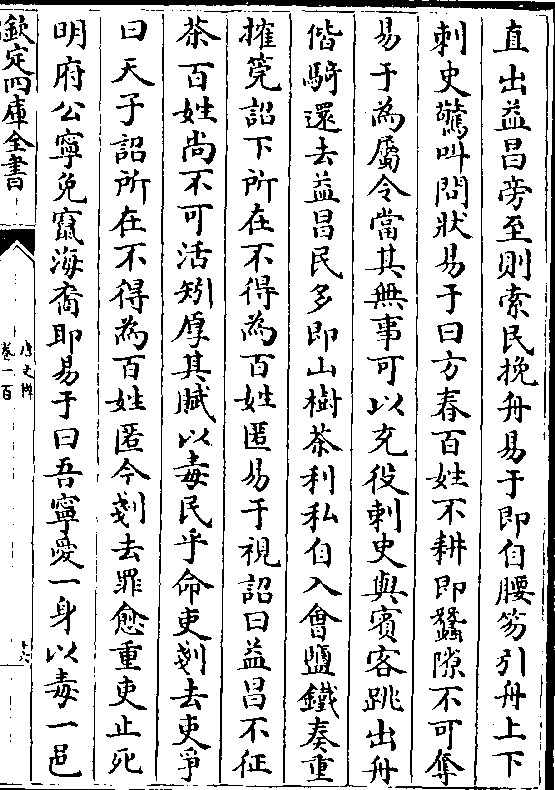 直出益昌旁至則索民挽舟易于即自腰笏引舟上下
刺史驚叫問狀易于曰方春百姓不耕即蠶隙不可奪
易于為屬令當其無事可以充役刺史與賓客跳出舟
偕騎還去益昌民多即山樹茶利私自入會鹽鐵奏重
搉筦詔下所在不得為百姓匿易于視詔曰益昌不征
茶百姓尚不可活矧厚其賦以毒民乎命吏剗去吏爭
曰天子詔所在不得為百姓匿今剗去罪愈重吏止死
明府公寧免竄海裔耶易于曰吾寧愛一身以毒一邑
欽定四庫全書
卷一百